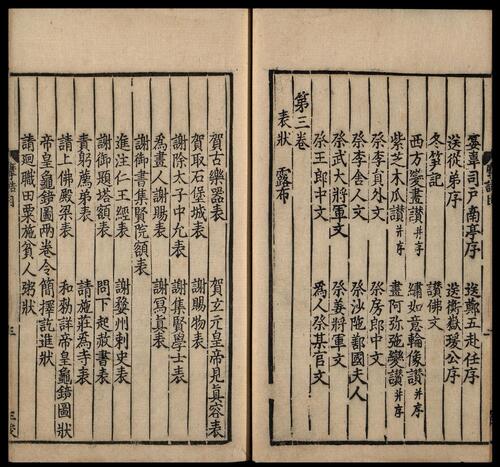 宴韋司戶南亭序 送鄭五赴任序
送從弟序 送衡嶽瑗公序
冬筍記 讚佛文
西方變畫讚并序 繡如意輪像讚并序
紫芝木瓜讚并序 畫阿弥陁變讚并序
祭李員外文 祭房郎中文
祭李舍人文 祭沙陁鄯國夫人
祭武大將軍文 祭姜將軍文
祭王郎中文 爲人祭某官文
第三卷
表狀 露布
賀古樂器表 賀玄元皇帝見真容表
賀取石堡城表 謝賜物表
謝除太子中允表 謝集賢學士表
爲畫人謝賜表 謝寫真表
謝御書集賢院額表
進注仁王經表 謝婺州刺史表
謝御題塔額表 問下起赦書表
責躬薦弟表 請施莊爲寺表
請上佛殿梁表 和勑詳帝皇龜鏡圖狀
帝皇龜鏡圖兩卷令簡擇訖進狀
請廻職田粟施貧人粥狀